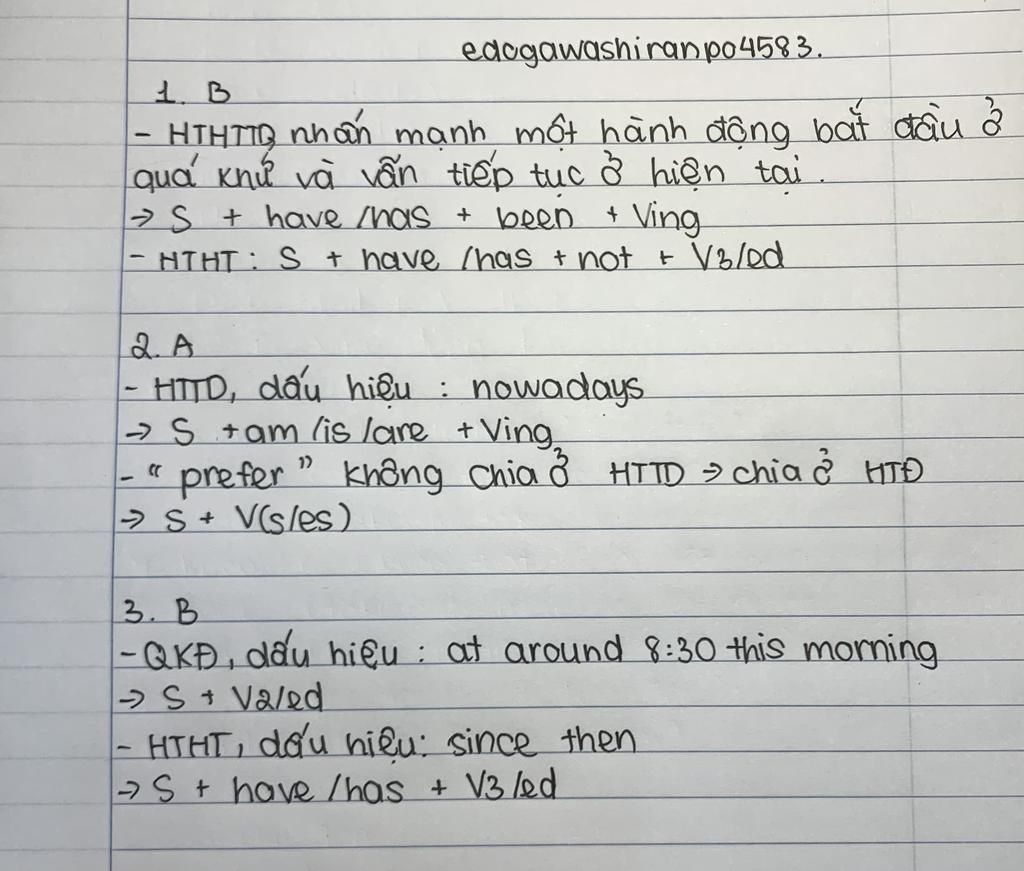 edogawashiranpo4583.
1. B
- HTHTTD nhấn mạnh một hành động bắt đầu ở
quá khứ và vẫn tiếp tục ở hiện tại.
→ S + have /has + been + Ving
- HTHT: S + have /has + not + V3/ed
2. A
- HTTD, dấu hiệu : nowadays
→ S + am /is /are + Ving
- “ prefer ” không chia ở HTTD → chia ở HTĐ
→ S + V(s/es)
3. B
- QKĐ, dấu hiệu : at around 8:30 this morning
→ S + V2/ed
- HTHT, dấu hiệu: since then
→ S + have /has + V3 /ed